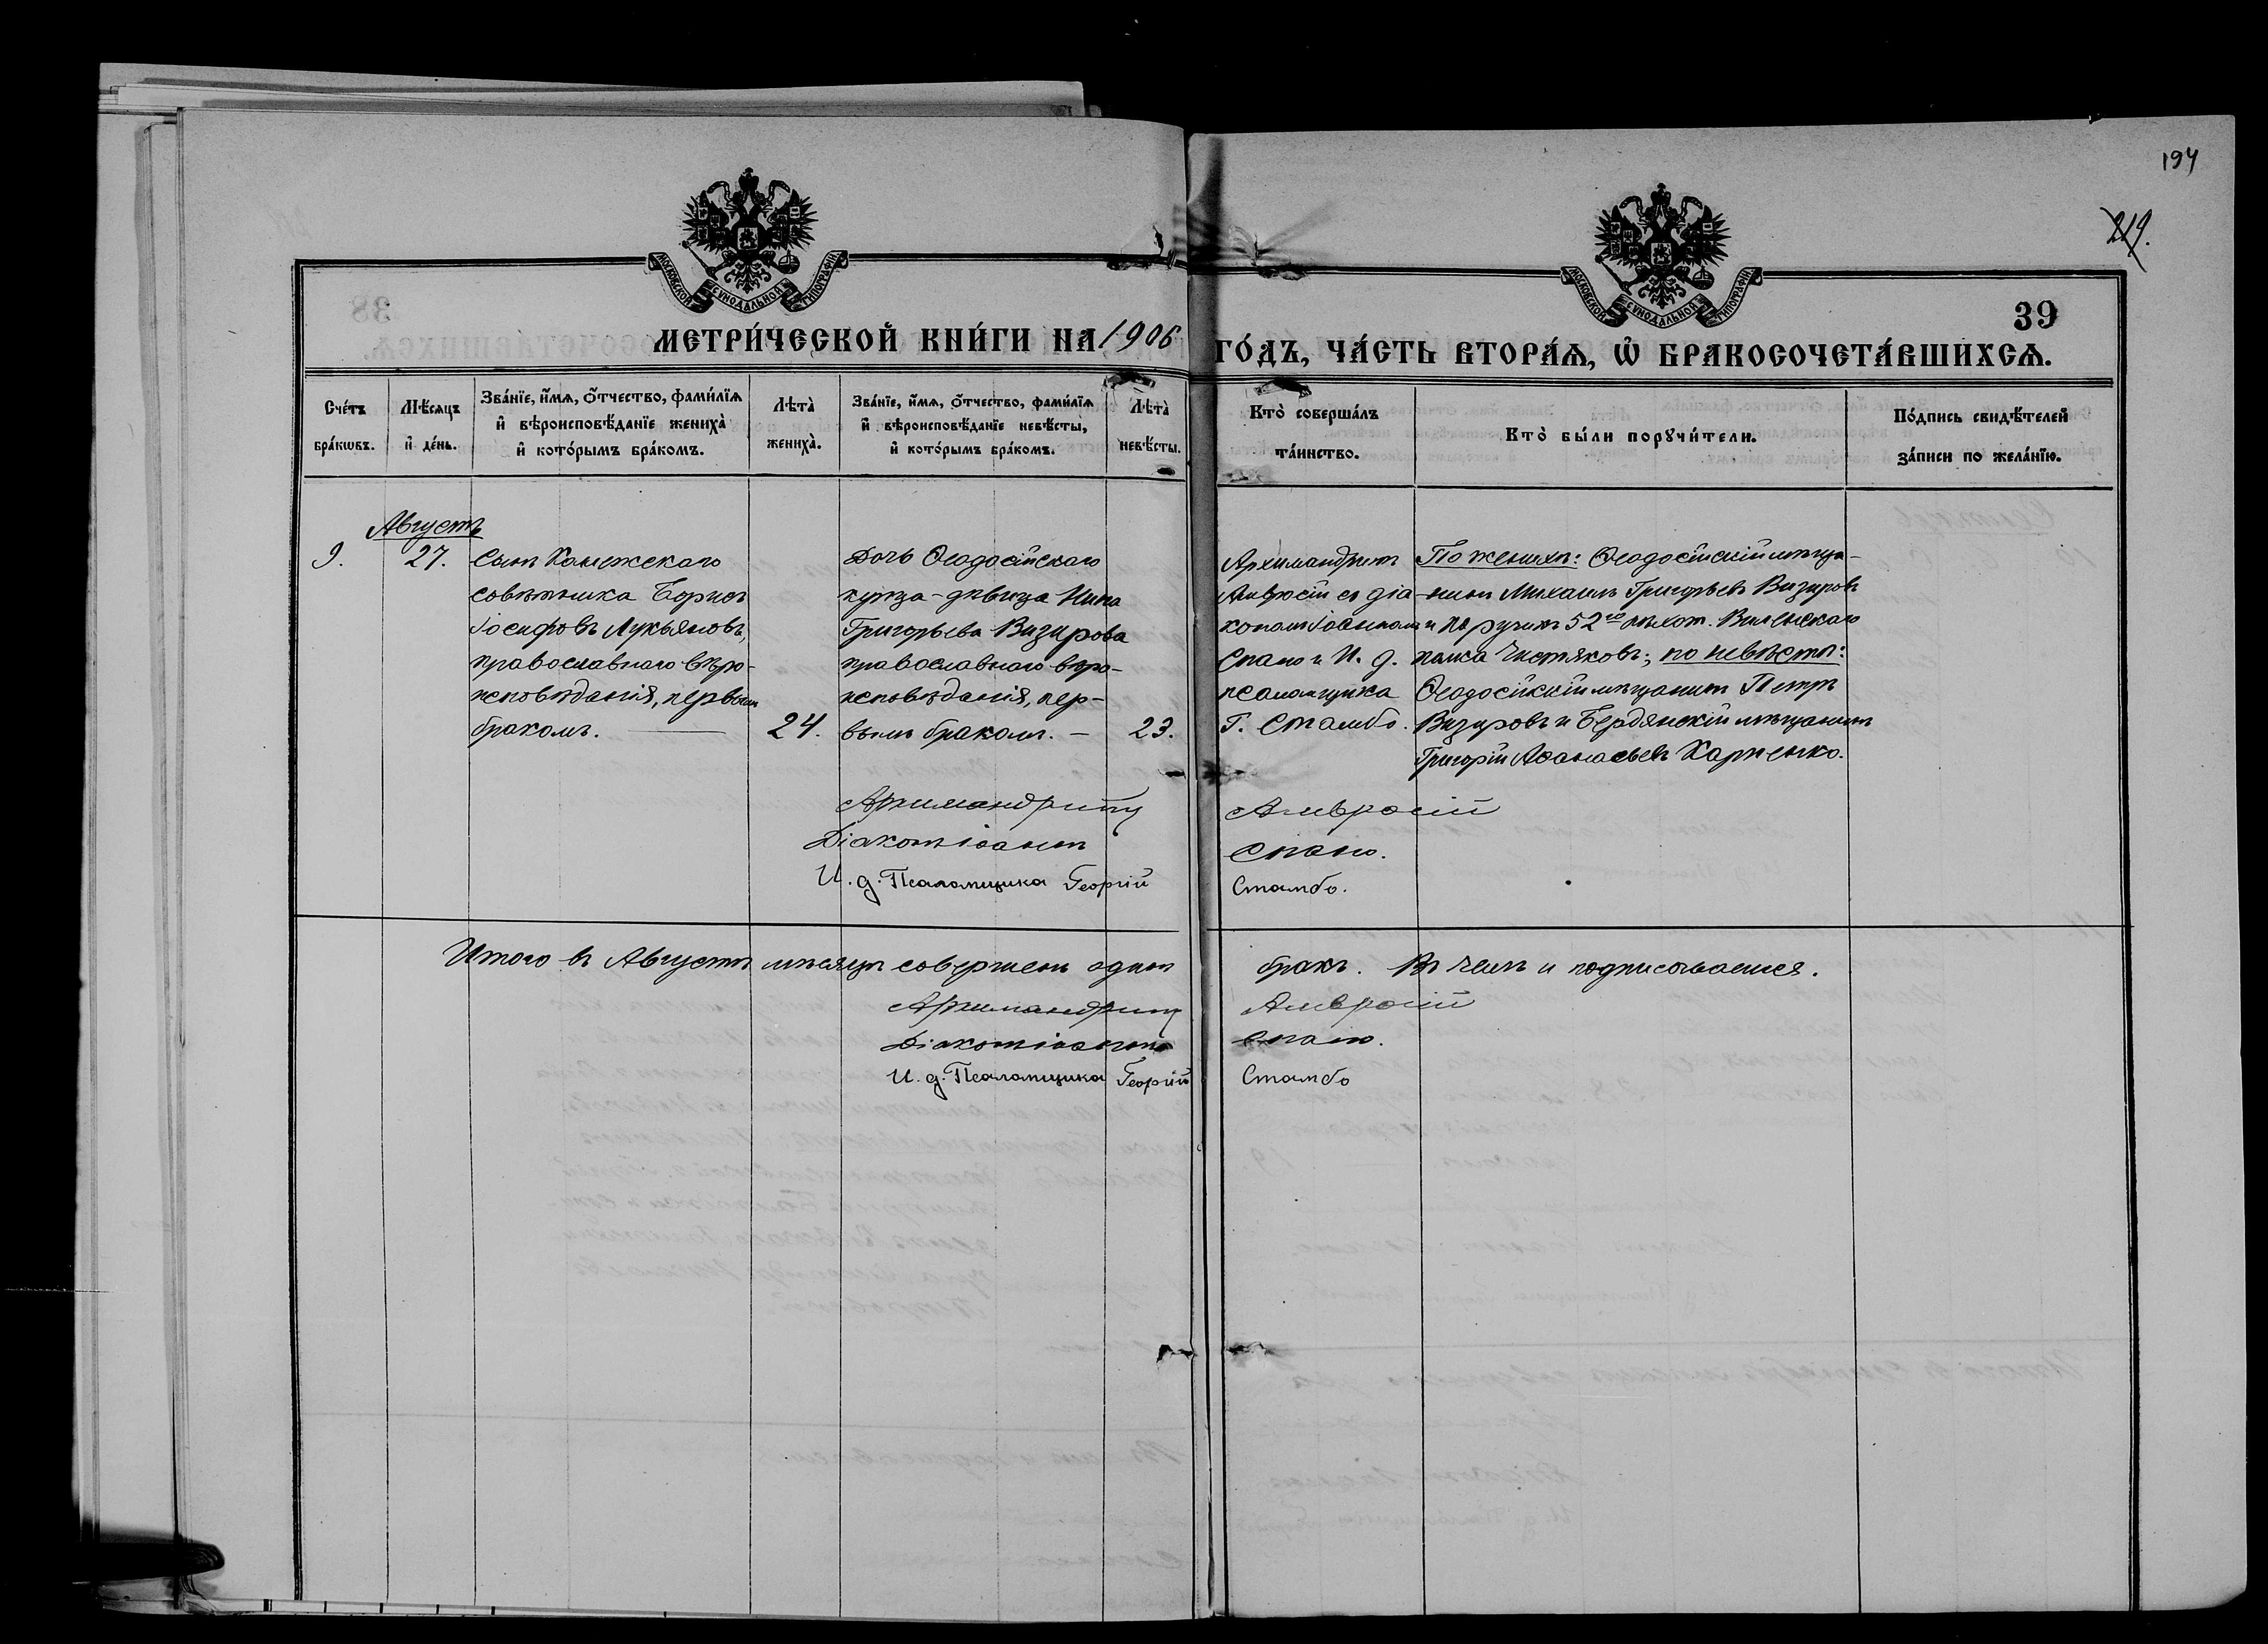 194
219.
39
МОСКОВСКОЙ СУНОДАЛЬНОЙ ТИПОГРАФІИ
МОСКОВСКОЙ СУНОДАЛЬНОЙ ТИПОГРАФІИ
МЕТРИ́ЧЕСКОЙ КНИ́ГИ НА 1906 ГО́ДЪ, ЧА́СТЬ ВТОРА́Ѧ, Ѿ БРАКОСОЧЕТА́ВШИХСѦ.
Сче́тъ бра́кѡвъ.
Мѣ́сяцъ и҆ де́нь.
Зва́нїе, и҆́мѧ, ѻ҆́тчество, фами́лїѧ и҆ вѣроисповѣ́данїе жениха̀ и҆ кото́рымъ бра́комъ.
Лѣта̀ жениха̀.
Зва́нїе, и҆́мѧ, ѻ҆́тчество, фами́лїѧ и҆ вѣроисповѣ́данїе невѣ́сты, и҆ кото́рымъ бра́комъ.
Лѣта̀ невѣ́сты.
Кто̀ соверша́лъ та́инство.
Кто̀ бы́ли порꙋчи́тели.
По́дпись свидѣ́телей за́писи по жела́нїю.
Августъ
9.
27.
Сынъ
совѣтника Борисъ
Іосифовъ Лукьяновъ,
православнаго вѣро-
исповѣданія, первымъ
бракомъ.
24.
Дочь Ѳеодосійскаго
купца - дѣвица Нина
Григорьева Визирова
православнаго вѣро-
исповѣданія, пер-
вымъ бракомъ. —
23.
Архимандритъ
Амвросій съ діа-
кономъ Іоанномъ
Спано и И. д.
псаломщика
Г. Стамбо.
По женихѣ: Ѳеодосійскій мѣща-
нинъ Михаилъ Григорьевъ Визировъ
и 52го пѣхот. Виленскаго
полка Чистяковъ; по невѣстѣ:
Ѳеодосійскій мѣщанинъ Петръ
Визировъ и Бердянскій мѣщанинъ
Григорій Аѳанасьевъ Харченко.
Архимандритъ Амвросій
Діаконъ Іоаннъ Спано.
И. д. Псаломщика Георгій Стамбо.
Итого въ Августѣ мѣсяцѣ совершенъ одинъ бракъ. Въ чемъ и подписываемся.
Архимандритъ Амвросій
Діаконъ Іоаннъ Спано.
И. д. Псаломщика Георгій Стамбо